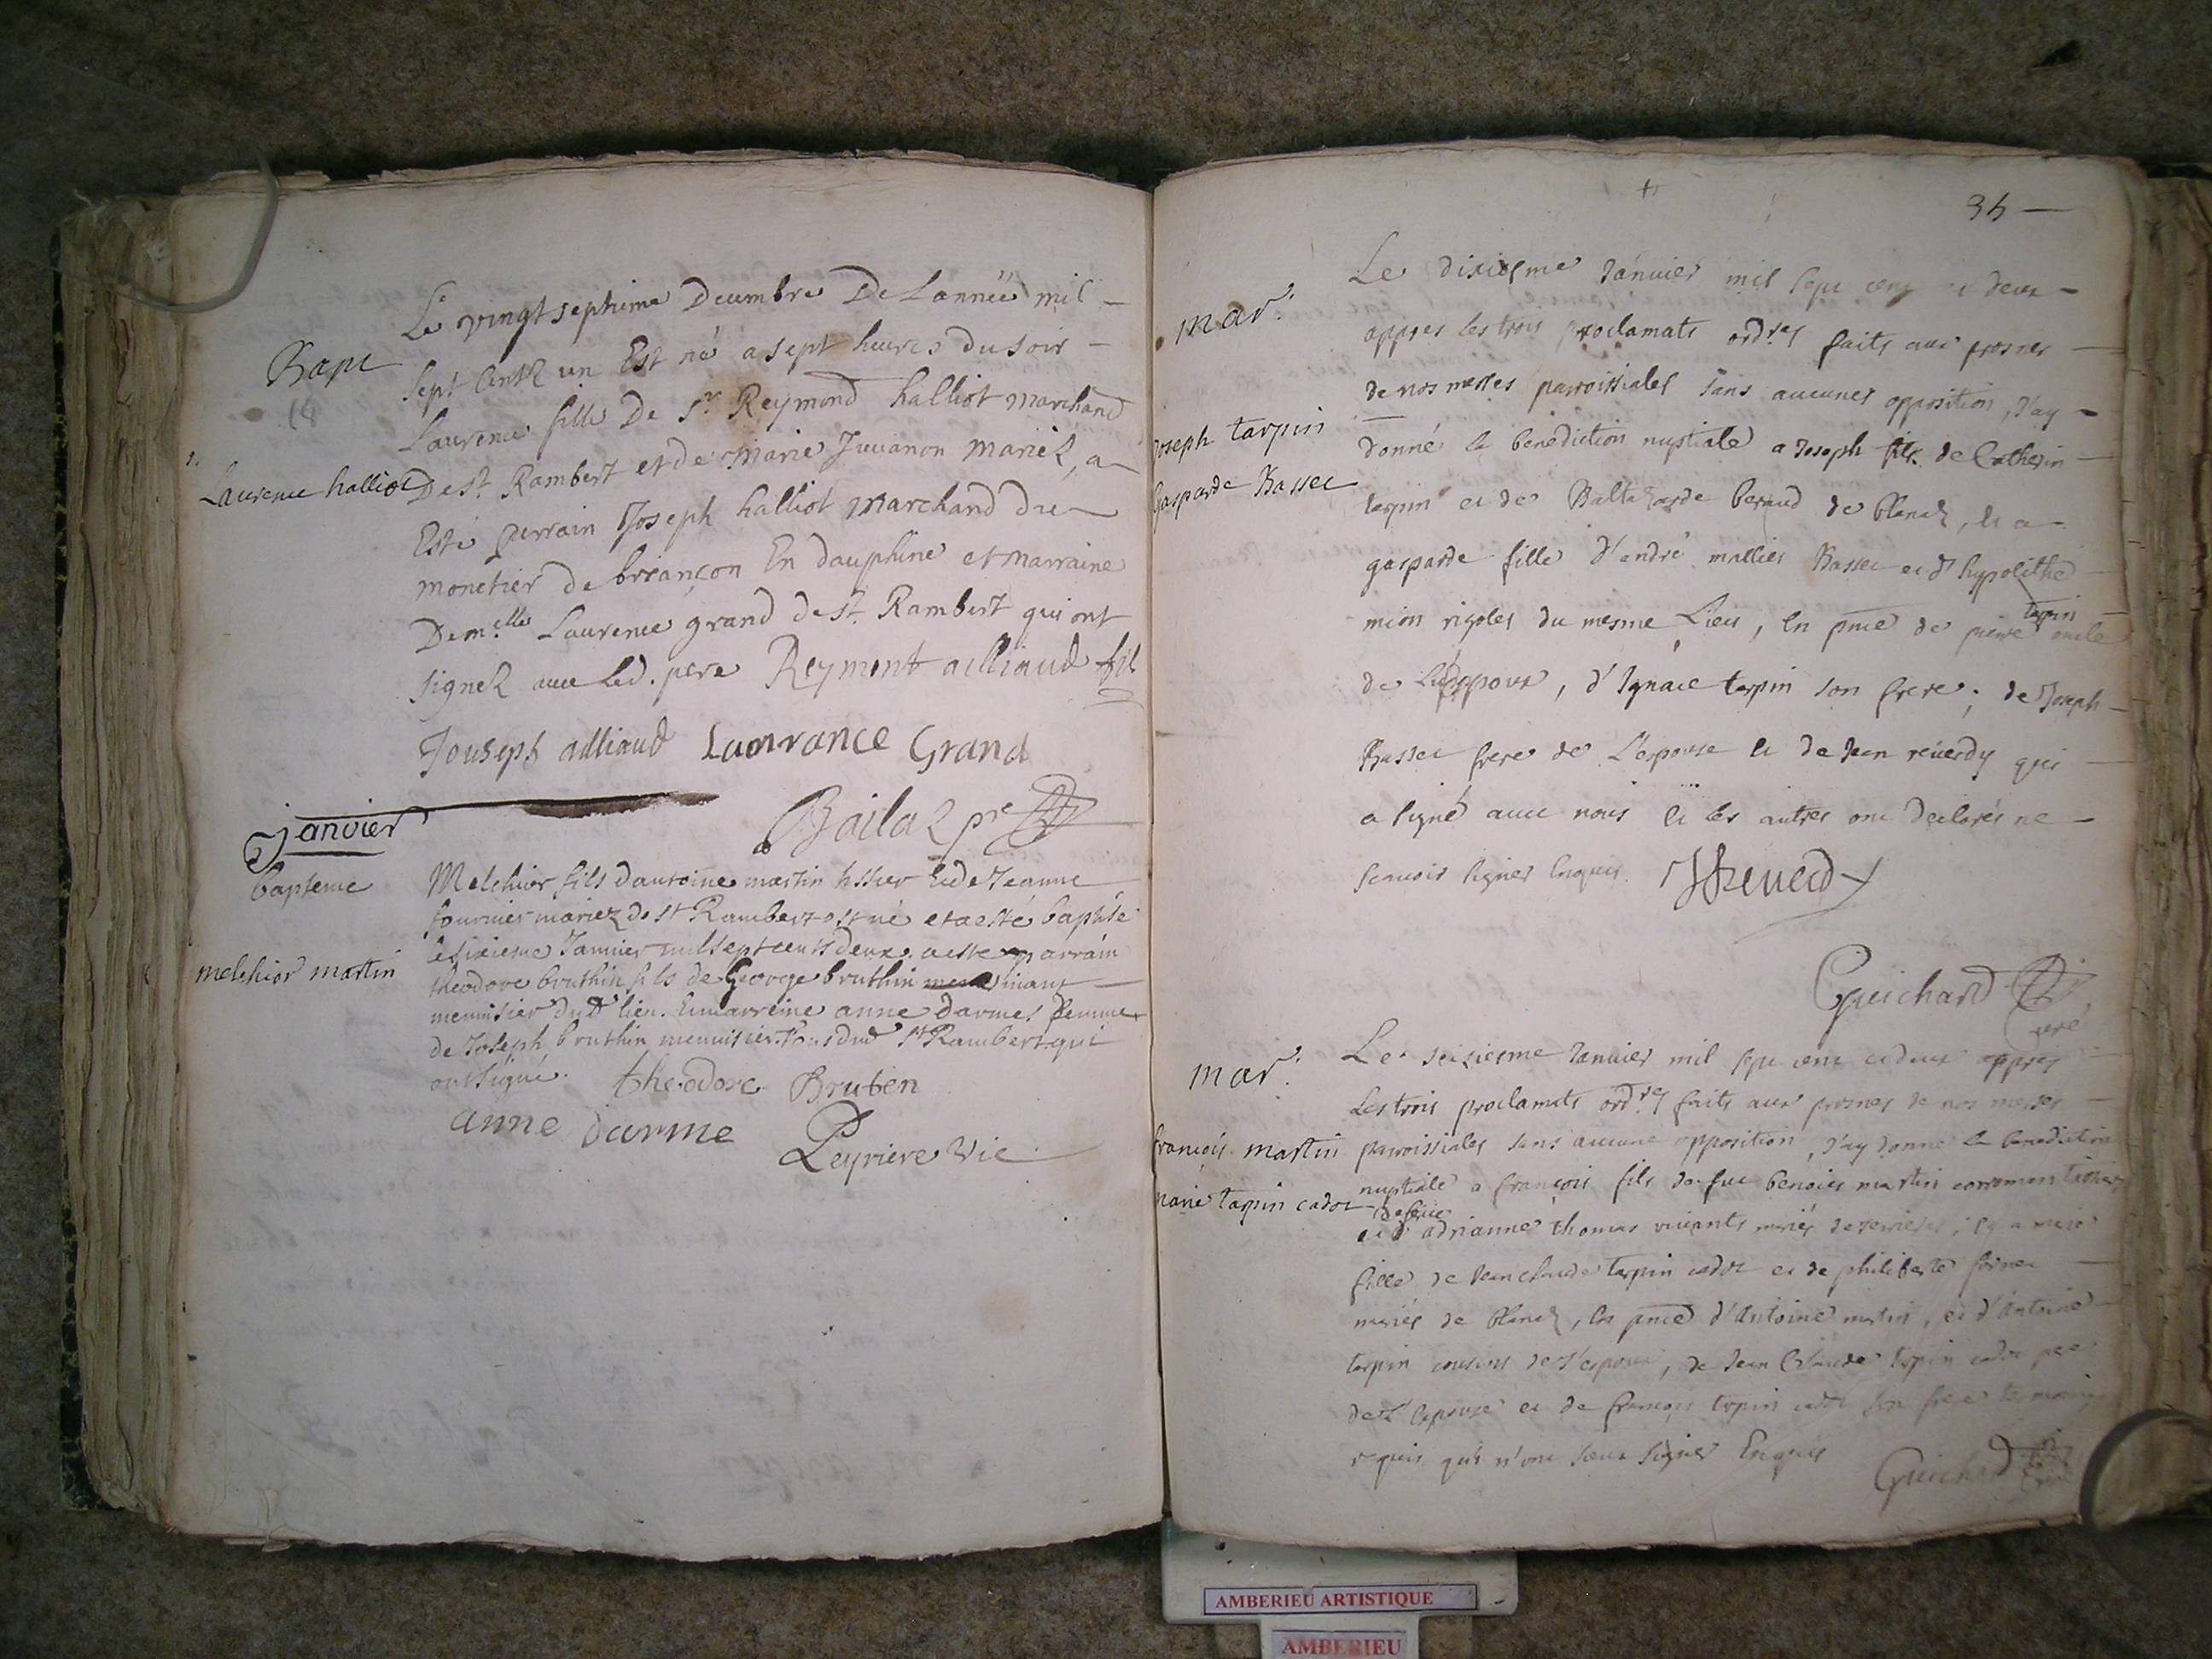 Bapt
18
Laurence halliod
Le vingt septieme Decembre De Lanneé mil —
sept Centz un Est né a sept heures Du soir —
Laurence fille De sr. Reymond halliot marchand
De st. Rambert et de Marie Juvanon mariez, a —
Esté perrain Joseph halliot marchand du —
monetier de briançon En dauphiné et marraine
Dem.elle Laurence grand de st. Rambert qui ont
signez avec led. pere Reymont ailliaud fil
Jouseph ailliaud Laonrance Grand
Bailaz pre
janvier
bapteme
melchior martin
Melchior fils dantoine martin tissier et de Jeanne
fournier mariez de st Rambert est né et a esté baptisé
le sixieme Janvier mil sept cents deux. a esté parrain
theodore bruthin fils de George bruthin
menuisier dud lieu. et marreine anne darmes femme
de Joseph bruthin menuisier tous dud st Rambert qui
ont signé. theodore Bruten
anne darme
Peyriere Vic
34 —
mar.
Joseph tarpin
Gasparde Bassec
Le dixiesme Janvier mil sept cens et deux —
appres les trois proclamats ord.res faits aux prosnes —
de nos messes parroissiales sans aucunes opposition, J'ay —
donné la benediction nuptiale a Joseph fils de Catherin —
tarpin et de Baltazarde beraud de blanaz, et a —
gasparde fille d'andré mallier Bassec et d'hypolithe
mion rigoles du mesme Lieu, en pnce de pierre tarpin oncle
de L'espoux, d'Ignace tarpin son frere, de Joseph —
Bassec frere de L'espouse et de Jean reverdy qui —
a signé avec nous et les autres ont declarés ne —
scavoir signer Enquis. JReverdy
Guichard
curé
mar.
françois martin
marie tarpin cadot
Le seiziesme Janvier mil sept cent et deux appres —
Les trois proclamats ord.res faits aux prosnes de nos messes —
parroissiales sans aucune opposition, J'ay donné la benediction
nuptiale a françois fils de feu benoict martin
et d'adrianne thomas vivants mariés de et a marie
fille de Jean claude tarpin cadot et de philiberte —
mariés de blanaz, en pnce d'Antoine martin, et d'Antoine
tarpin cousins de l'espoux, de Jean Claude tarpin cadot pere
de L'espouse et de françois tarpin cadot son frere temoins
requis qui n'ont sceu signer Enquis Guichard
curé
AMBERIEU ARTISTIQUE
AMBERIEU